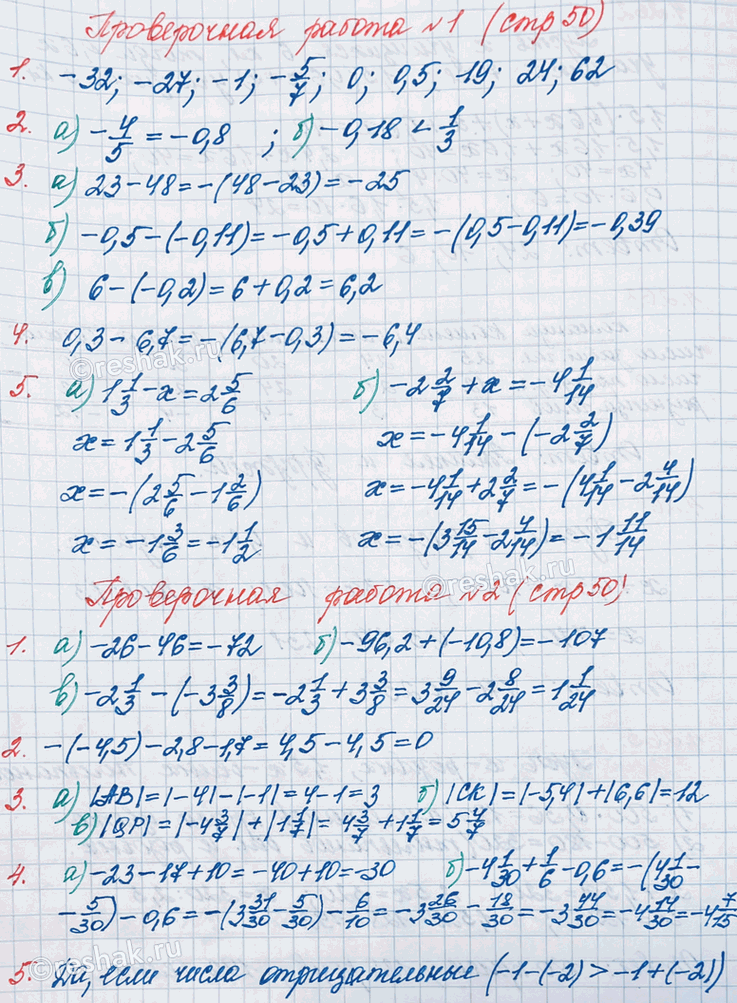 Проверочная работа №1 (стр 50)
1. -32; -27; -1; -5/7; 0; 0,5; 19; 24; 62
2. а) -4/5 = -0,8 ; б) -0,18 < 1/3
3. а) 23-48=-(48-23)=-25
б) -0,5-(-0,11)=-0,5+0,11=-(0,5-0,11)=-0,39
в) 6-(-0,2)=6+0,2=6,2
4. 0,3-6,7=-(6,7-0,3)=-6,4
5. а) 1 1/3 - x = 2 5/6 б) -2 2/7 + x = -4 1/14
x = 1 1/3 - 2 5/6 x = -4 1/14 - (-2 2/7)
x = -(2 5/6 - 1 2/6) x = -4 1/14 + 2 2/7 = -(4 1/14 - 2 4/14)
x = -1 3/6 = -1 1/2 x = -(3 15/14 - 2 4/14) = -1 11/14
Проверочная работа №2 (стр 50)
1. а) -26-46=-72 б) -96,2+(-10,8)=-107
в) -2 1/3 - (-3 3/8) = -2 1/3 + 3 3/8 = 3 9/24 - 2 8/24 = 1 1/24
2. -(-4,5)-2,8-1,7=4,5-4,5=0
3. а) |AB|=|-4|-|-1|=4-1=3 б) |CK|=|-5,4|+|6,6|=12
в) |QP|=|-4 3/7|+|1 1/7|= 4 3/7 + 1 1/7 = 5 4/7
4. а) -23-17+10=-40+10=-30 б) -4 1/30 + 1/6 - 0,6 = -(4 1/30 -
- 5/30) - 0,6 = -(3 31/30 - 5/30) - 6/10 = -3 26/30 - 18/30 = -3 44/30 = -4 14/30 = -4 7/15
5. Да, если числа отрицательные (-1-(-2) > -1+(-2))
©reshak.ru
©reshak.ru
©reshak.ru
©reshak.ru